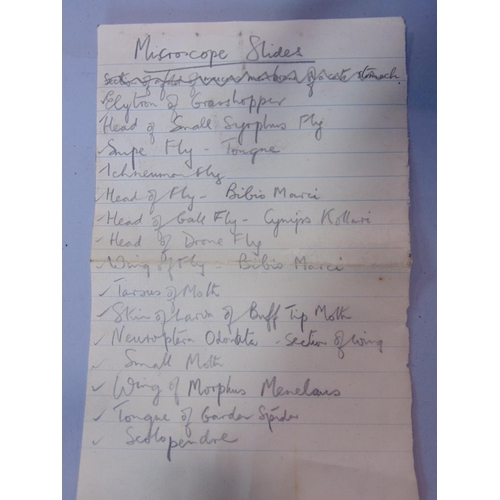 Microscope Slides
Section of of mucous membrane of cats stomach
Elytron of Grasshopper
Head of Small Syrphus Fly
✓ Snipe Fly - Tongue
✓ Ichneumon Fly
✓ Head of Fly - Bibio Marci
✓ Head of Gall Fly - Cynips Kollari
✓ Head of Drone Fly
✓ Wing of Fly - Bibio Marci
✓ Tarsus of Moth
✓ Skin of Larva of Buff Tip Moth
✓ Neuroptera Odonata - section of wing
✓ Small Moth
✓ Wing of Morphus Menelaus
✓ Tongue of Garden Spider
✓ Scolopendre